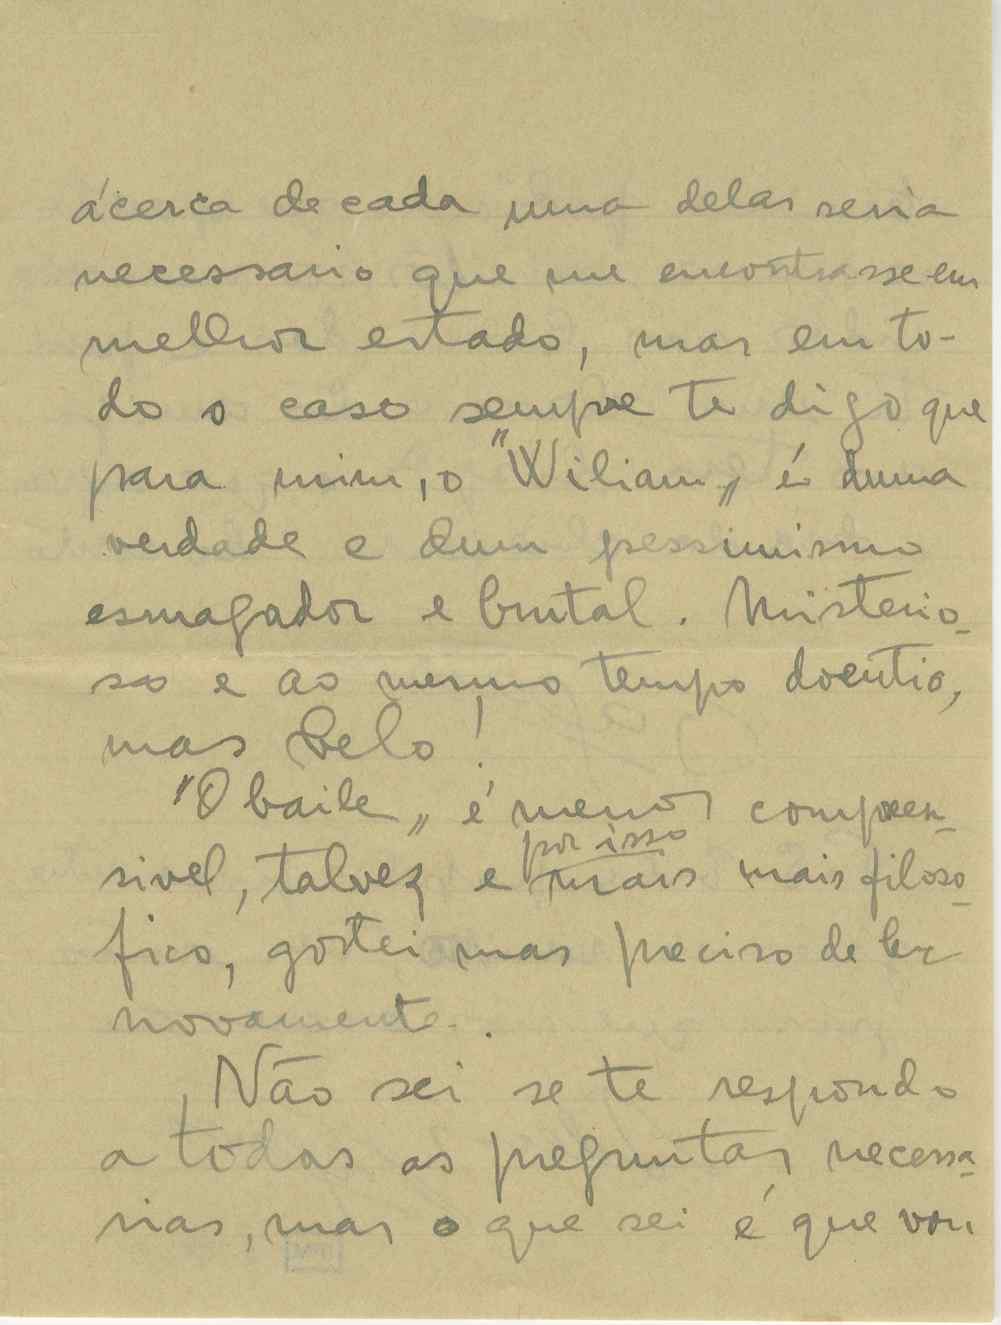 ácerca de cada uma delas seria
necessario que me encontrasse em
melhor estado, mas em to-
do o caso sempre te digo que
para mim, o "Wiliam„ é duma
verdade e dum pessimismo
esmagador e brutal. Misterio-
so e ao mesmo tempo doentio,
mas belo!
"O baile„ é menos compreen-
sivel, talvez e por isso mais mais filoso-
fico, gostei mas preciso de ler
novamente.
Não sei se te respondo
a todas as preguntas necessa-
rias, mas o que sei é que vou